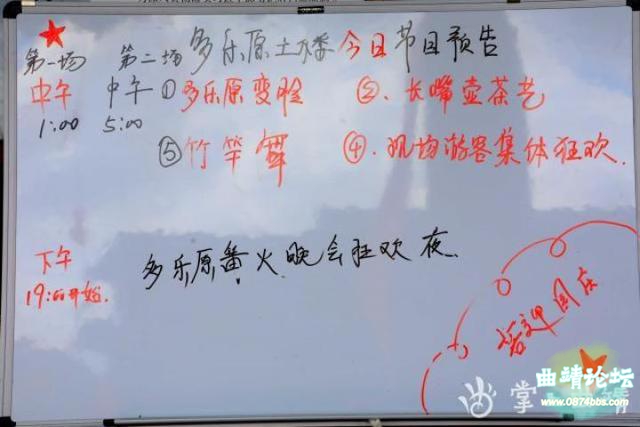 第一场 第二场 多乐原土楼今日节目预告
中午 中午 ①多乐原变脸 ②、长嘴壶茶艺
1:00 5:00
⑤竹竿舞 ④、现场游客集体狂欢.
下午 多乐原番火晚会狂欢夜.
19:00开始.
喜迎国庆
曲靖论坛
www.0874bbs.com
掌